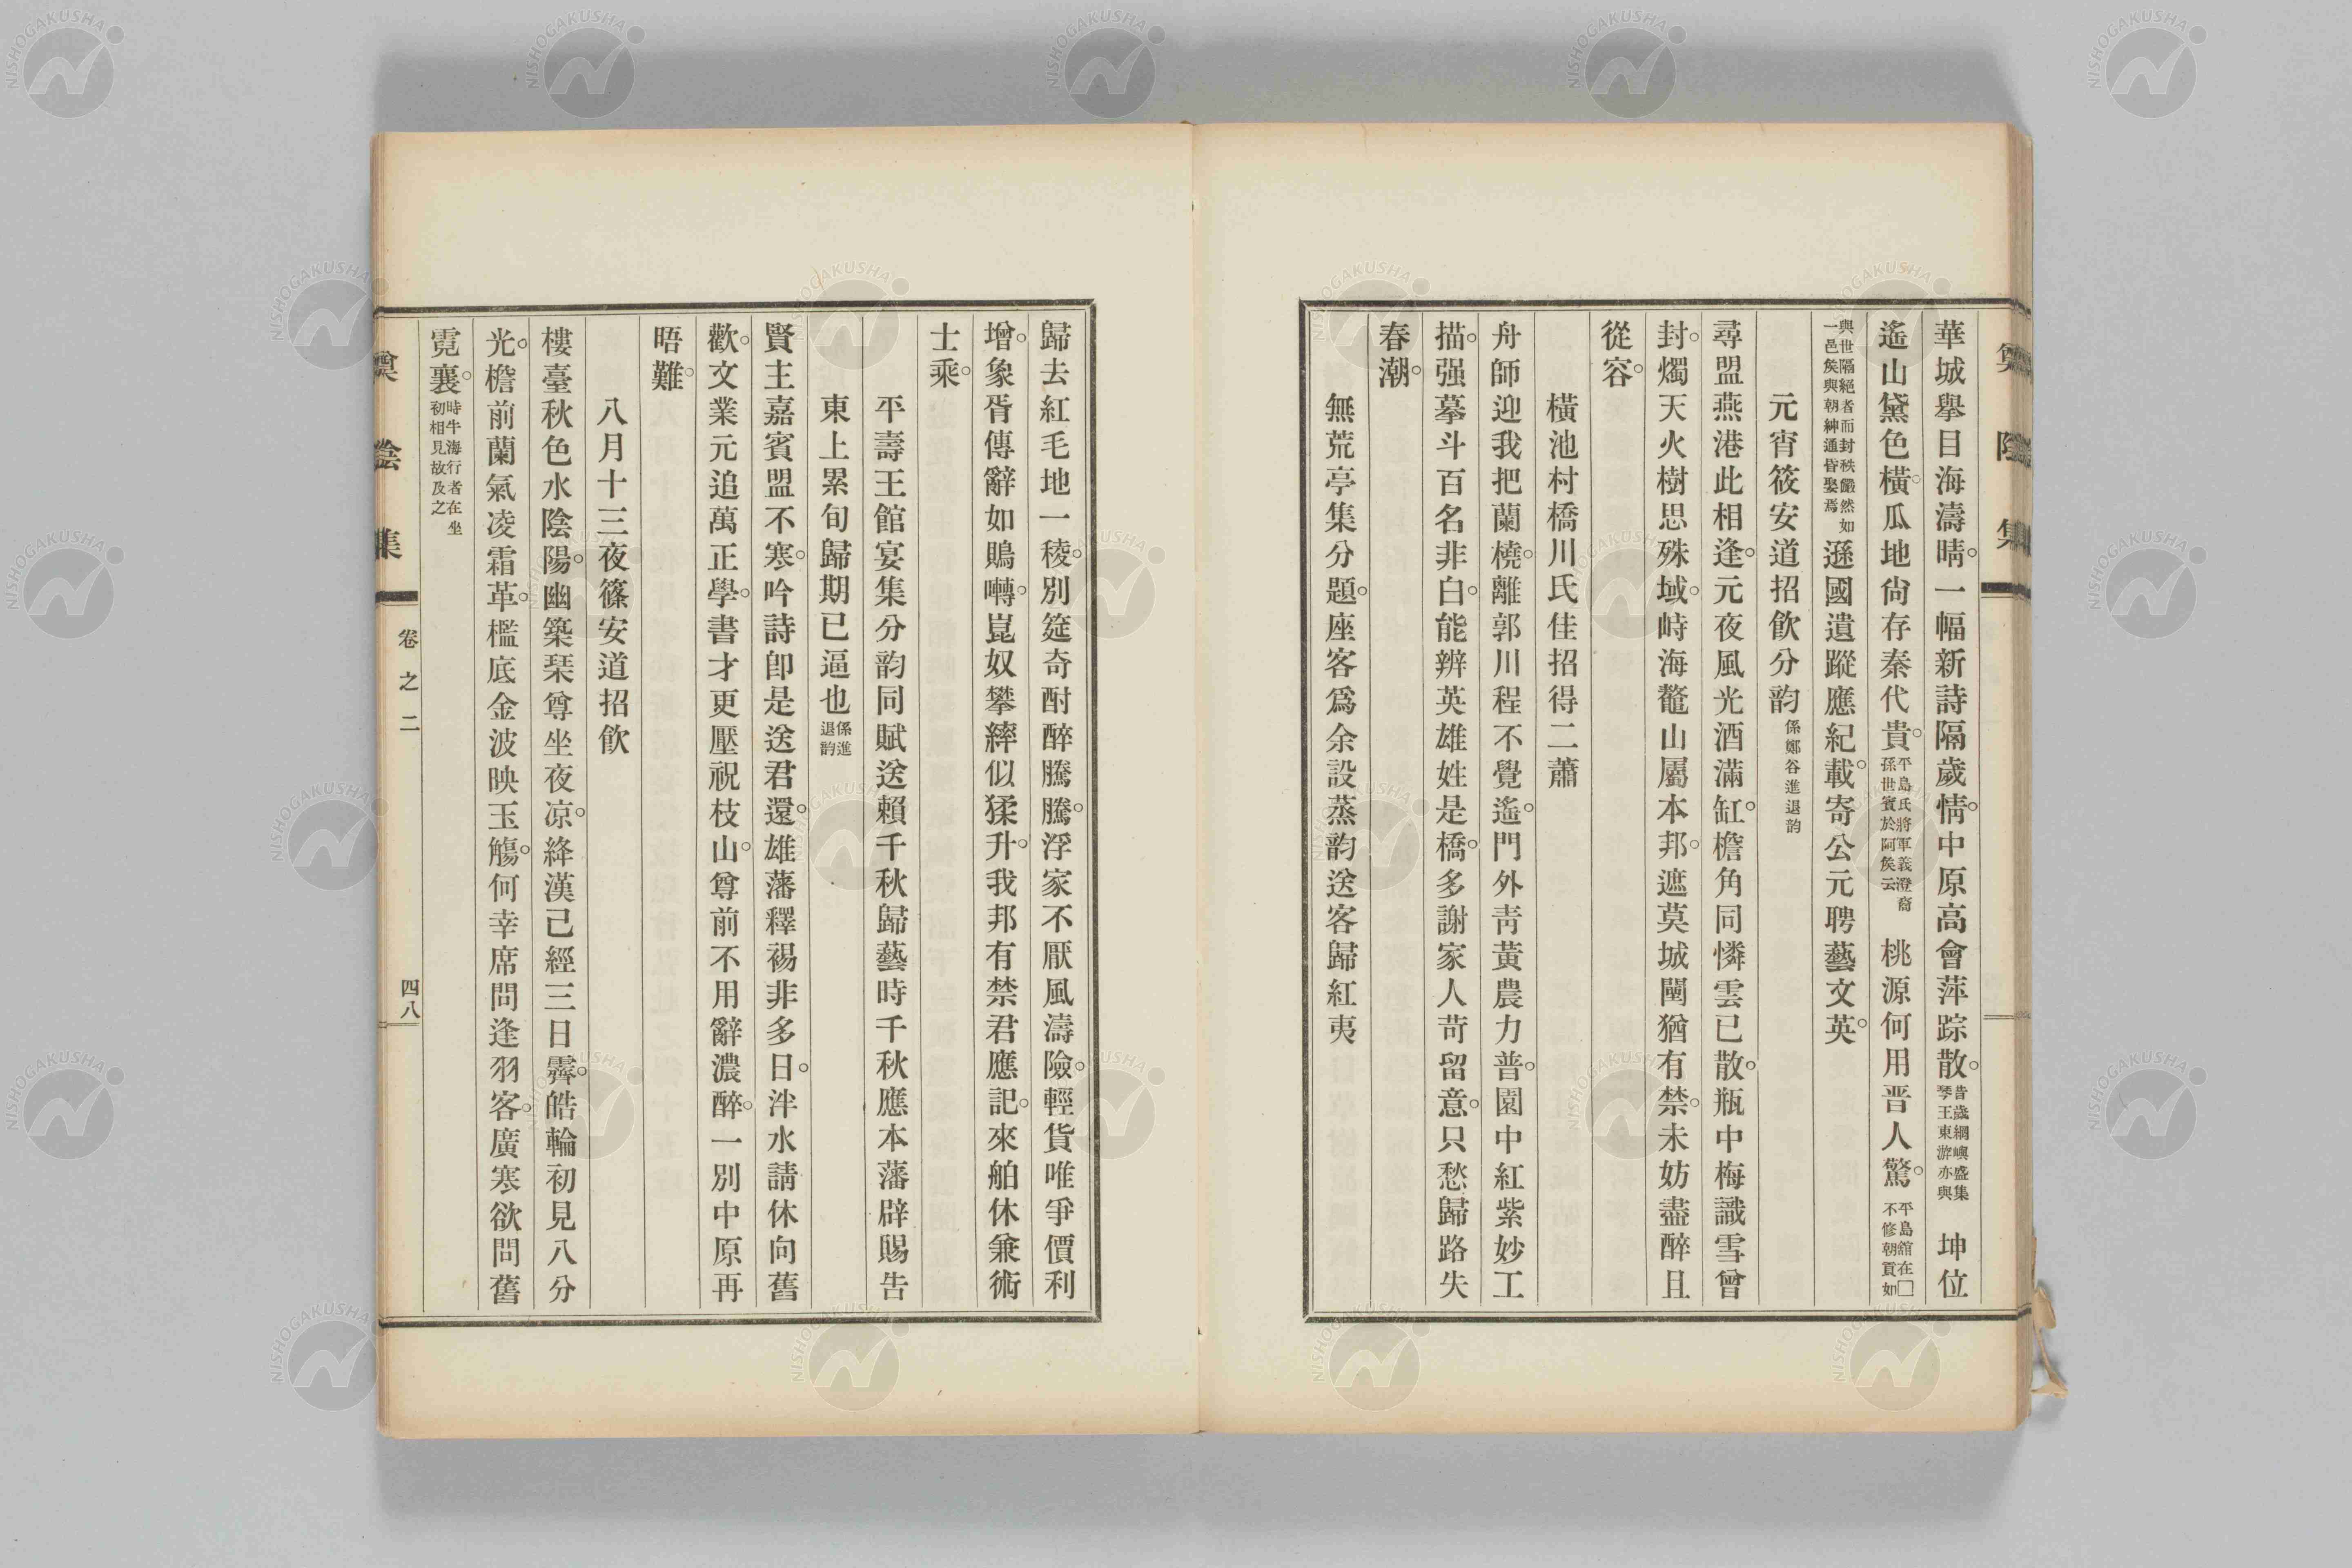 華城擧目海濤晴。一幅新詩隔歲情。中原高會萍踪散。昔歲綱嶼盛集琴王東游亦與 坤位
遙山黛色橫。瓜地尙存秦代貴。平島氏將軍義澄裔孫世賓於阿侯云 桃源何用晋人驚。平島館在□不修朝貢如
與世隔絕者而封秩嚴然如一邑侯與朝紳通昏娶焉 遜國遺蹤應紀載。寄公元聘藝文英。
元宵筱安道招飮分韵係鄭谷進退韵
尋盟燕港此相逢。元夜風光酒滿缸。檐角同憐雲已散。瓶中梅識雪曾
封。燭天火樹思殊域。峙海鼇山屬本邦。遮莫城闉猶有禁。未妨盡醉且
從容。
橫池村橋川氏佳招得二蕭
舟師迎我把蘭橈。離郭川程不覺遙。門外靑黃農力普。園中紅紫妙工
描。强摹斗百名非白。能辨英雄姓是橋。多謝家人苛留意。只愁歸路失
春潮。
無荒亭集分題。座客爲余設蒸韵送客歸紅夷
歸去紅毛地一稜。別筵奇酎醉騰騰。浮家不厭風濤險。輕貨唯爭價利
增。象胥傳辭如鴃囀。崑奴攀縴似猱升。我邦有禁君應記。來舶休兼術
士乘。
平壽王館宴集分韵同賦送賴千秋歸藝時千秋應本藩辟賜告
東上累旬歸期已逼也係進退韵
賢主嘉賓盟不寒。吟詩卽是送君還。雄藩釋褐非多日。泮水請休向舊
歡。文業元追萬正學。書才更壓祝枝山。尊前不用辭濃醉。一別中原再
晤難。
八月十三夜篠安道招飮
樓臺秋色水陰陽。幽築栞尊坐夜凉。絳漢己經三日霽。皓輪初見八分
光。檐前蘭氣凌霜革。檻底金波映玉觴。何幸席問逢羽客。廣寒欲問舊
霓裳。時牛海行者在坐初相見故及之
陰集
卷之二
四八